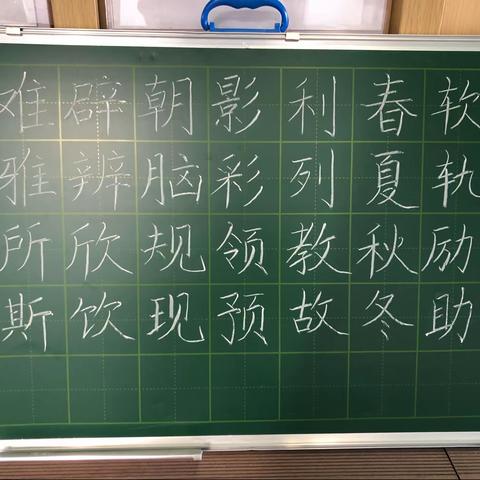 难辟朝影利春软
雅辨脑彩列夏轨
所欣规领教秋励
斯饮现预故冬助